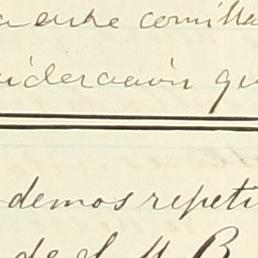 ante comilla
ideración qu
demos repeti
de S. M. B.